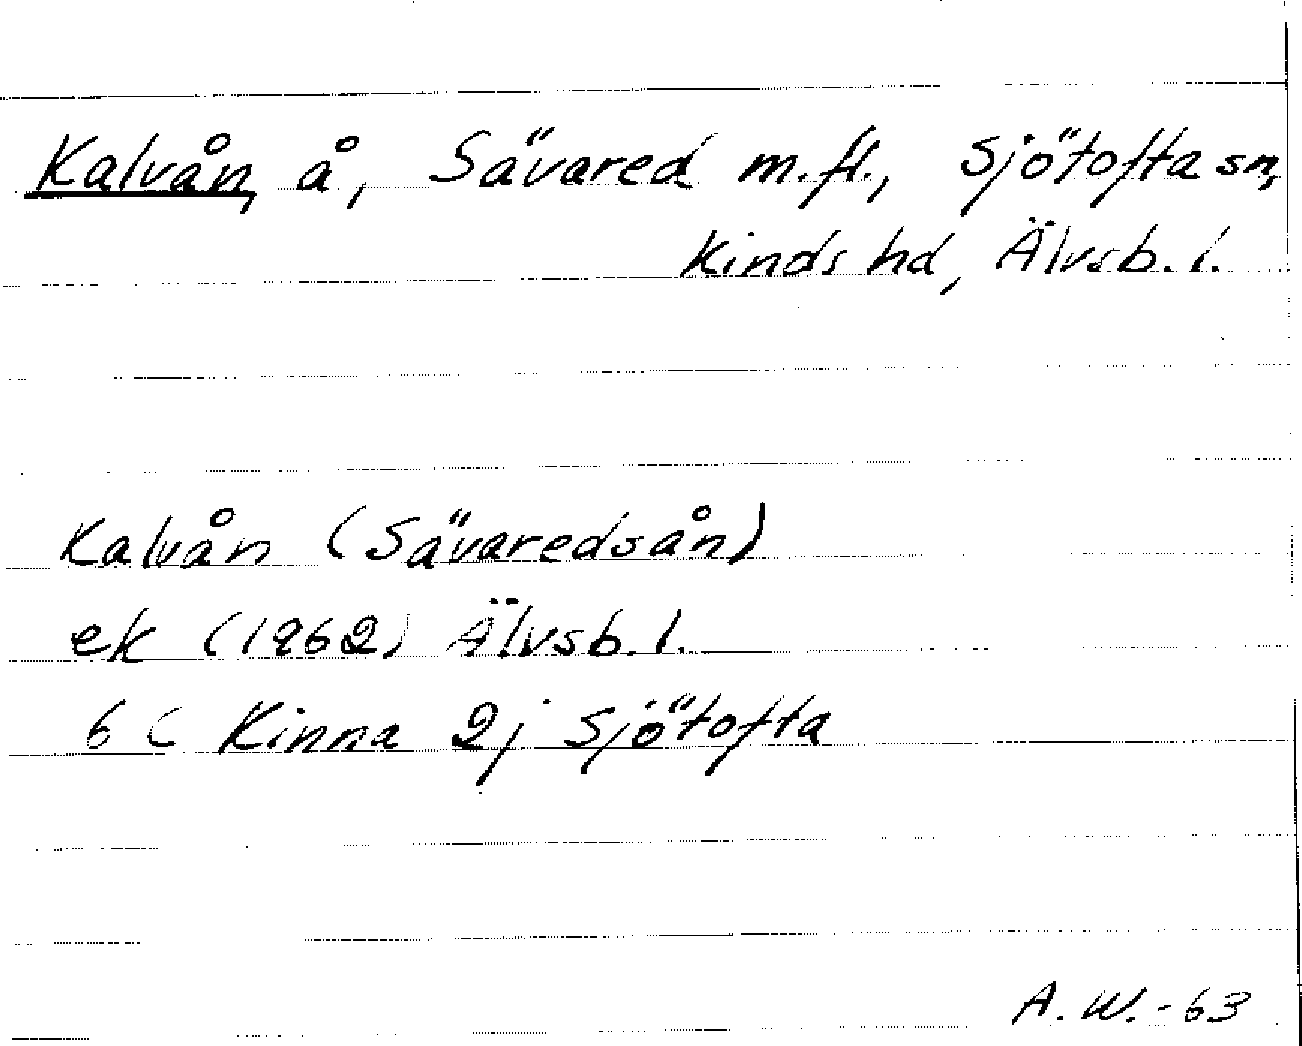 Kalvån, å, Sävared m.fl., Sjötofta sn,
Kinds hd, Älvsb. l.
Kalvån (Sävaredsån)
ek (1962) Älvsb. l.
6 C Kinna 2j Sjötofta
A. W. - 63